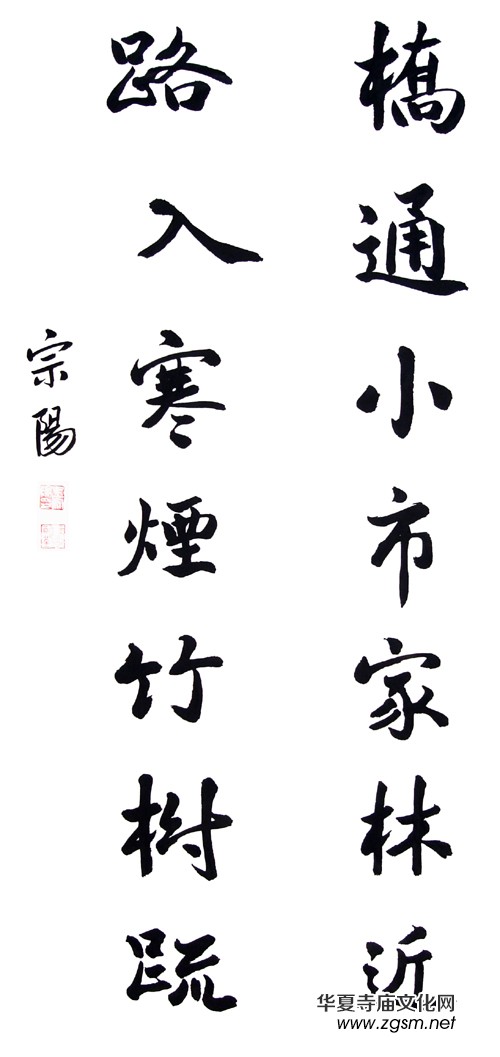 橋通小市家林近
路入寒煙竹樹疏
宗陽
华夏寺庙文化网
www.zgsm.net